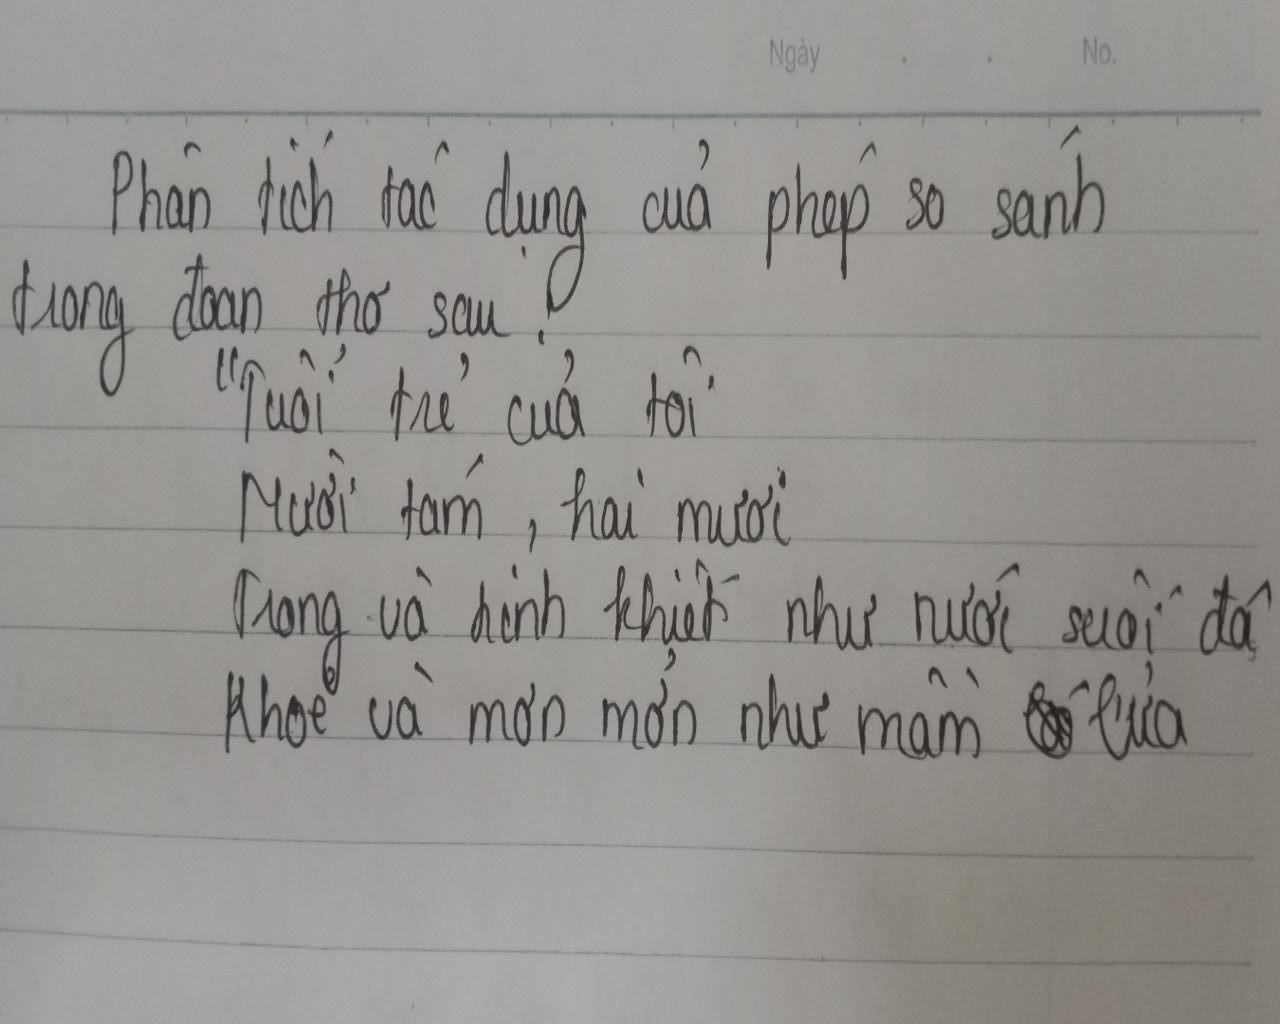 Ngày . . No.
Phân tích tác dụng của phép so sánh
trong đoạn thơ sau?
"Tuổi trẻ của tôi
Mười tám, hai mươi
Trong và tinh khiết như nước suối đá
Khoẻ và mơn mởn như mầm lúa